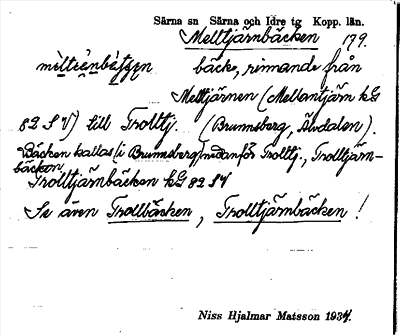 Särna sn Särna och Idre tg Kopp. län.
Melltjärnbäcken 179.
bäck, rinnande från
Meltjärnen (Mellantjärn kG
82 SV) till Trolltj. (Brunnsberg, Älvdalen).
Bäcken kallas (i Brunnsberg) nedanför Trolltj., Trolltjärn-
bäcken,
Trolltjärnbäcken kG 82 SV
Se även Trollbäcken, Trolltjärnbäcken!
Niss Hjalmar Matsson 1937.